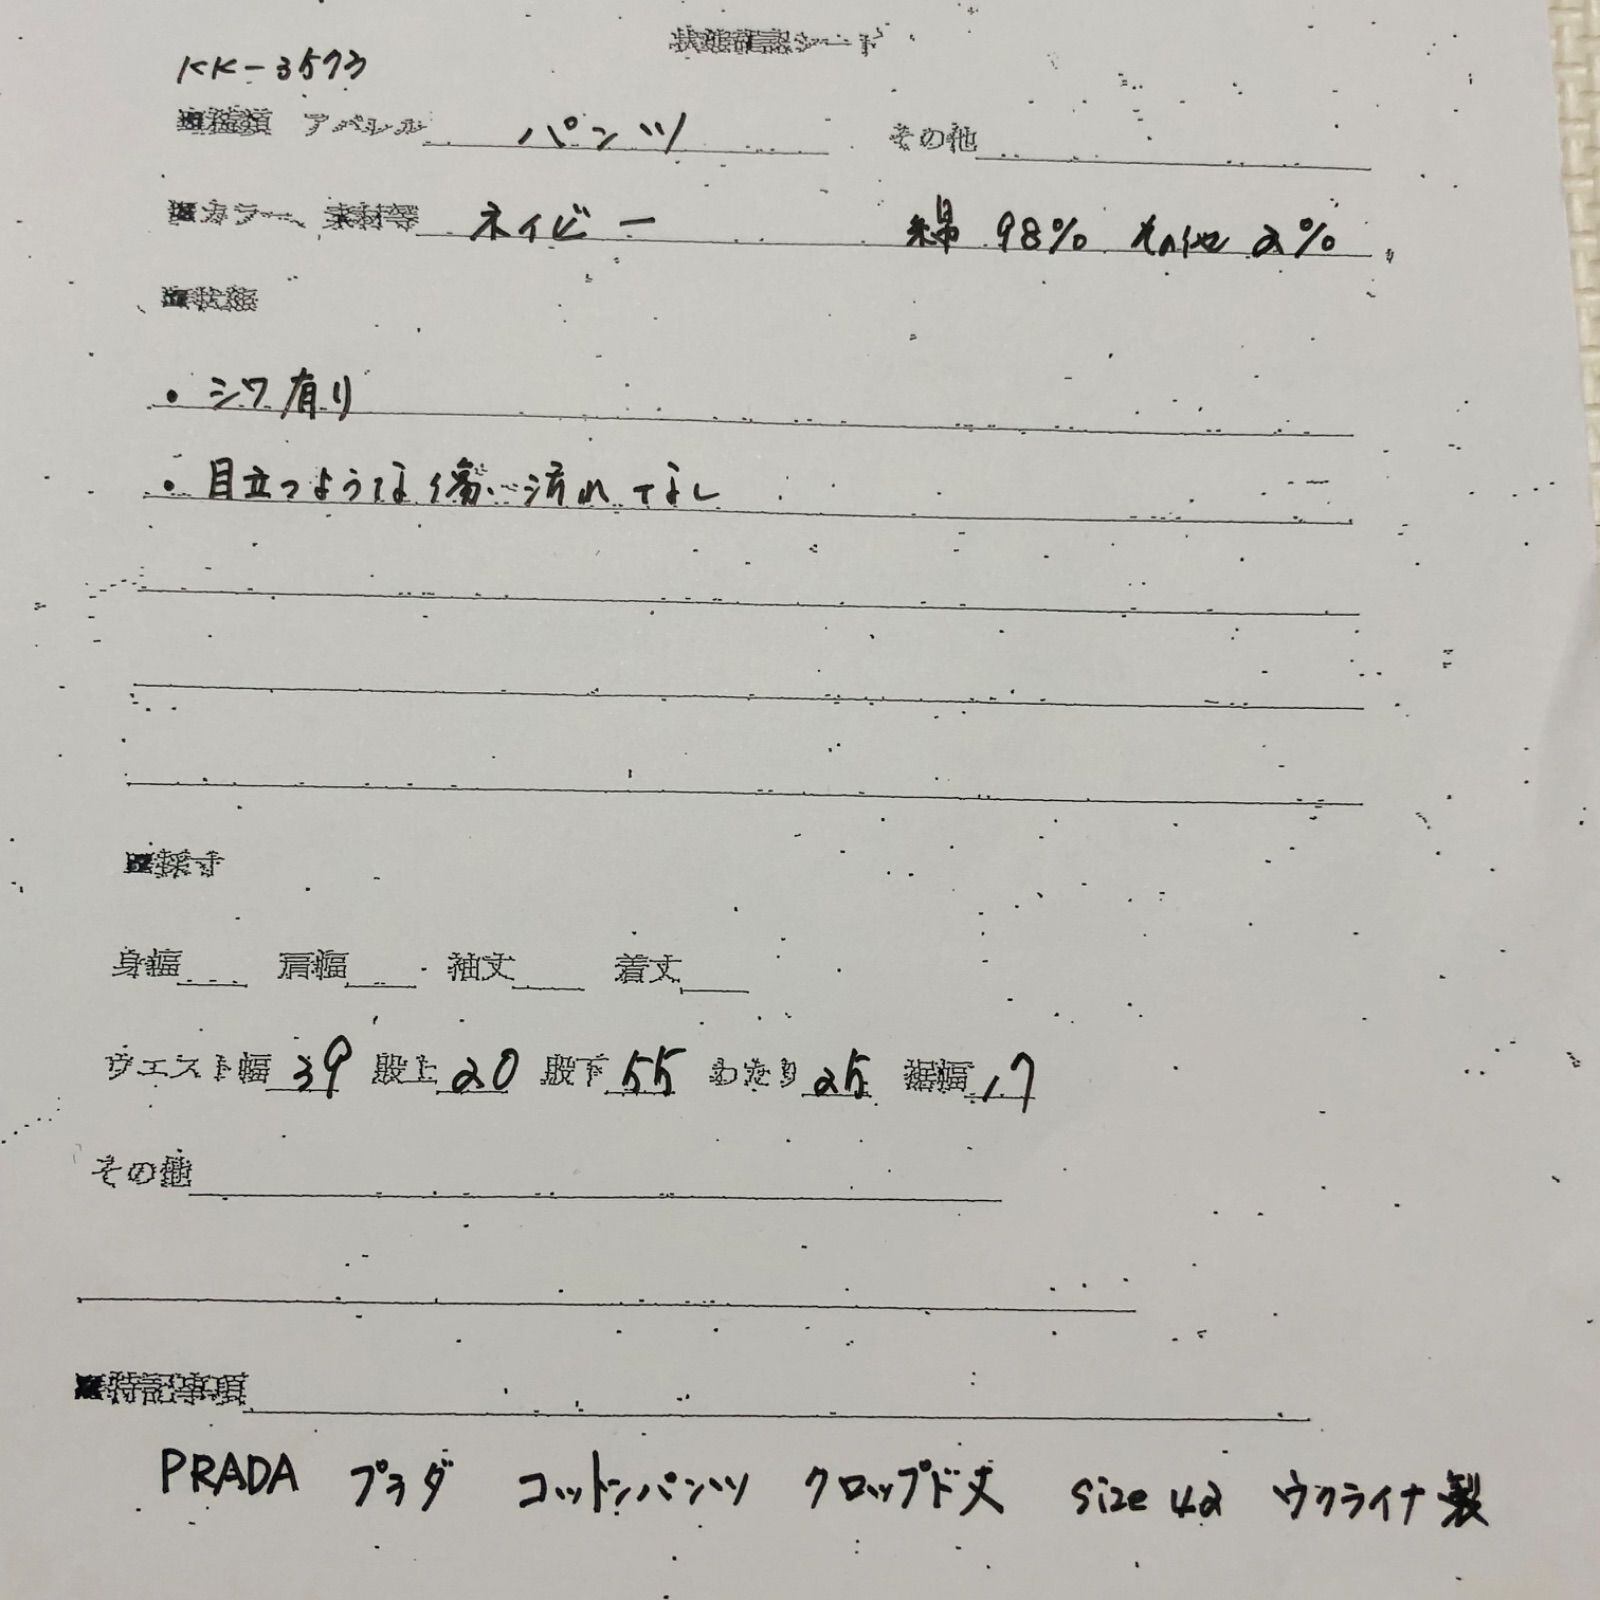 状態確認シート
KK-3573
■種類 アパレル パンツ その他
■カラー、素材等 ネイビー 綿 98% その他 2%
■状態
・シワ有り
・目立つような傷・汚れ なし
■採寸
身幅 肩幅 袖丈 着丈
ウエスト幅 39 股上 20 股下 55 わたり 25 裾幅 17
その他
■特記事項
PRADA プラダ コットンパンツ クロップド丈 size 42 ウクライナ製